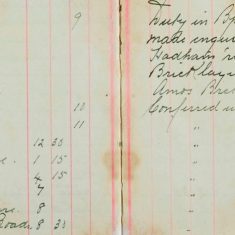 9
10
11
12 30
1 15
4 15
7
8
Road. 8 30
Duty in
made enqui
Hadham
Bricklay
Amos
Conferred
"
"
"
"
"